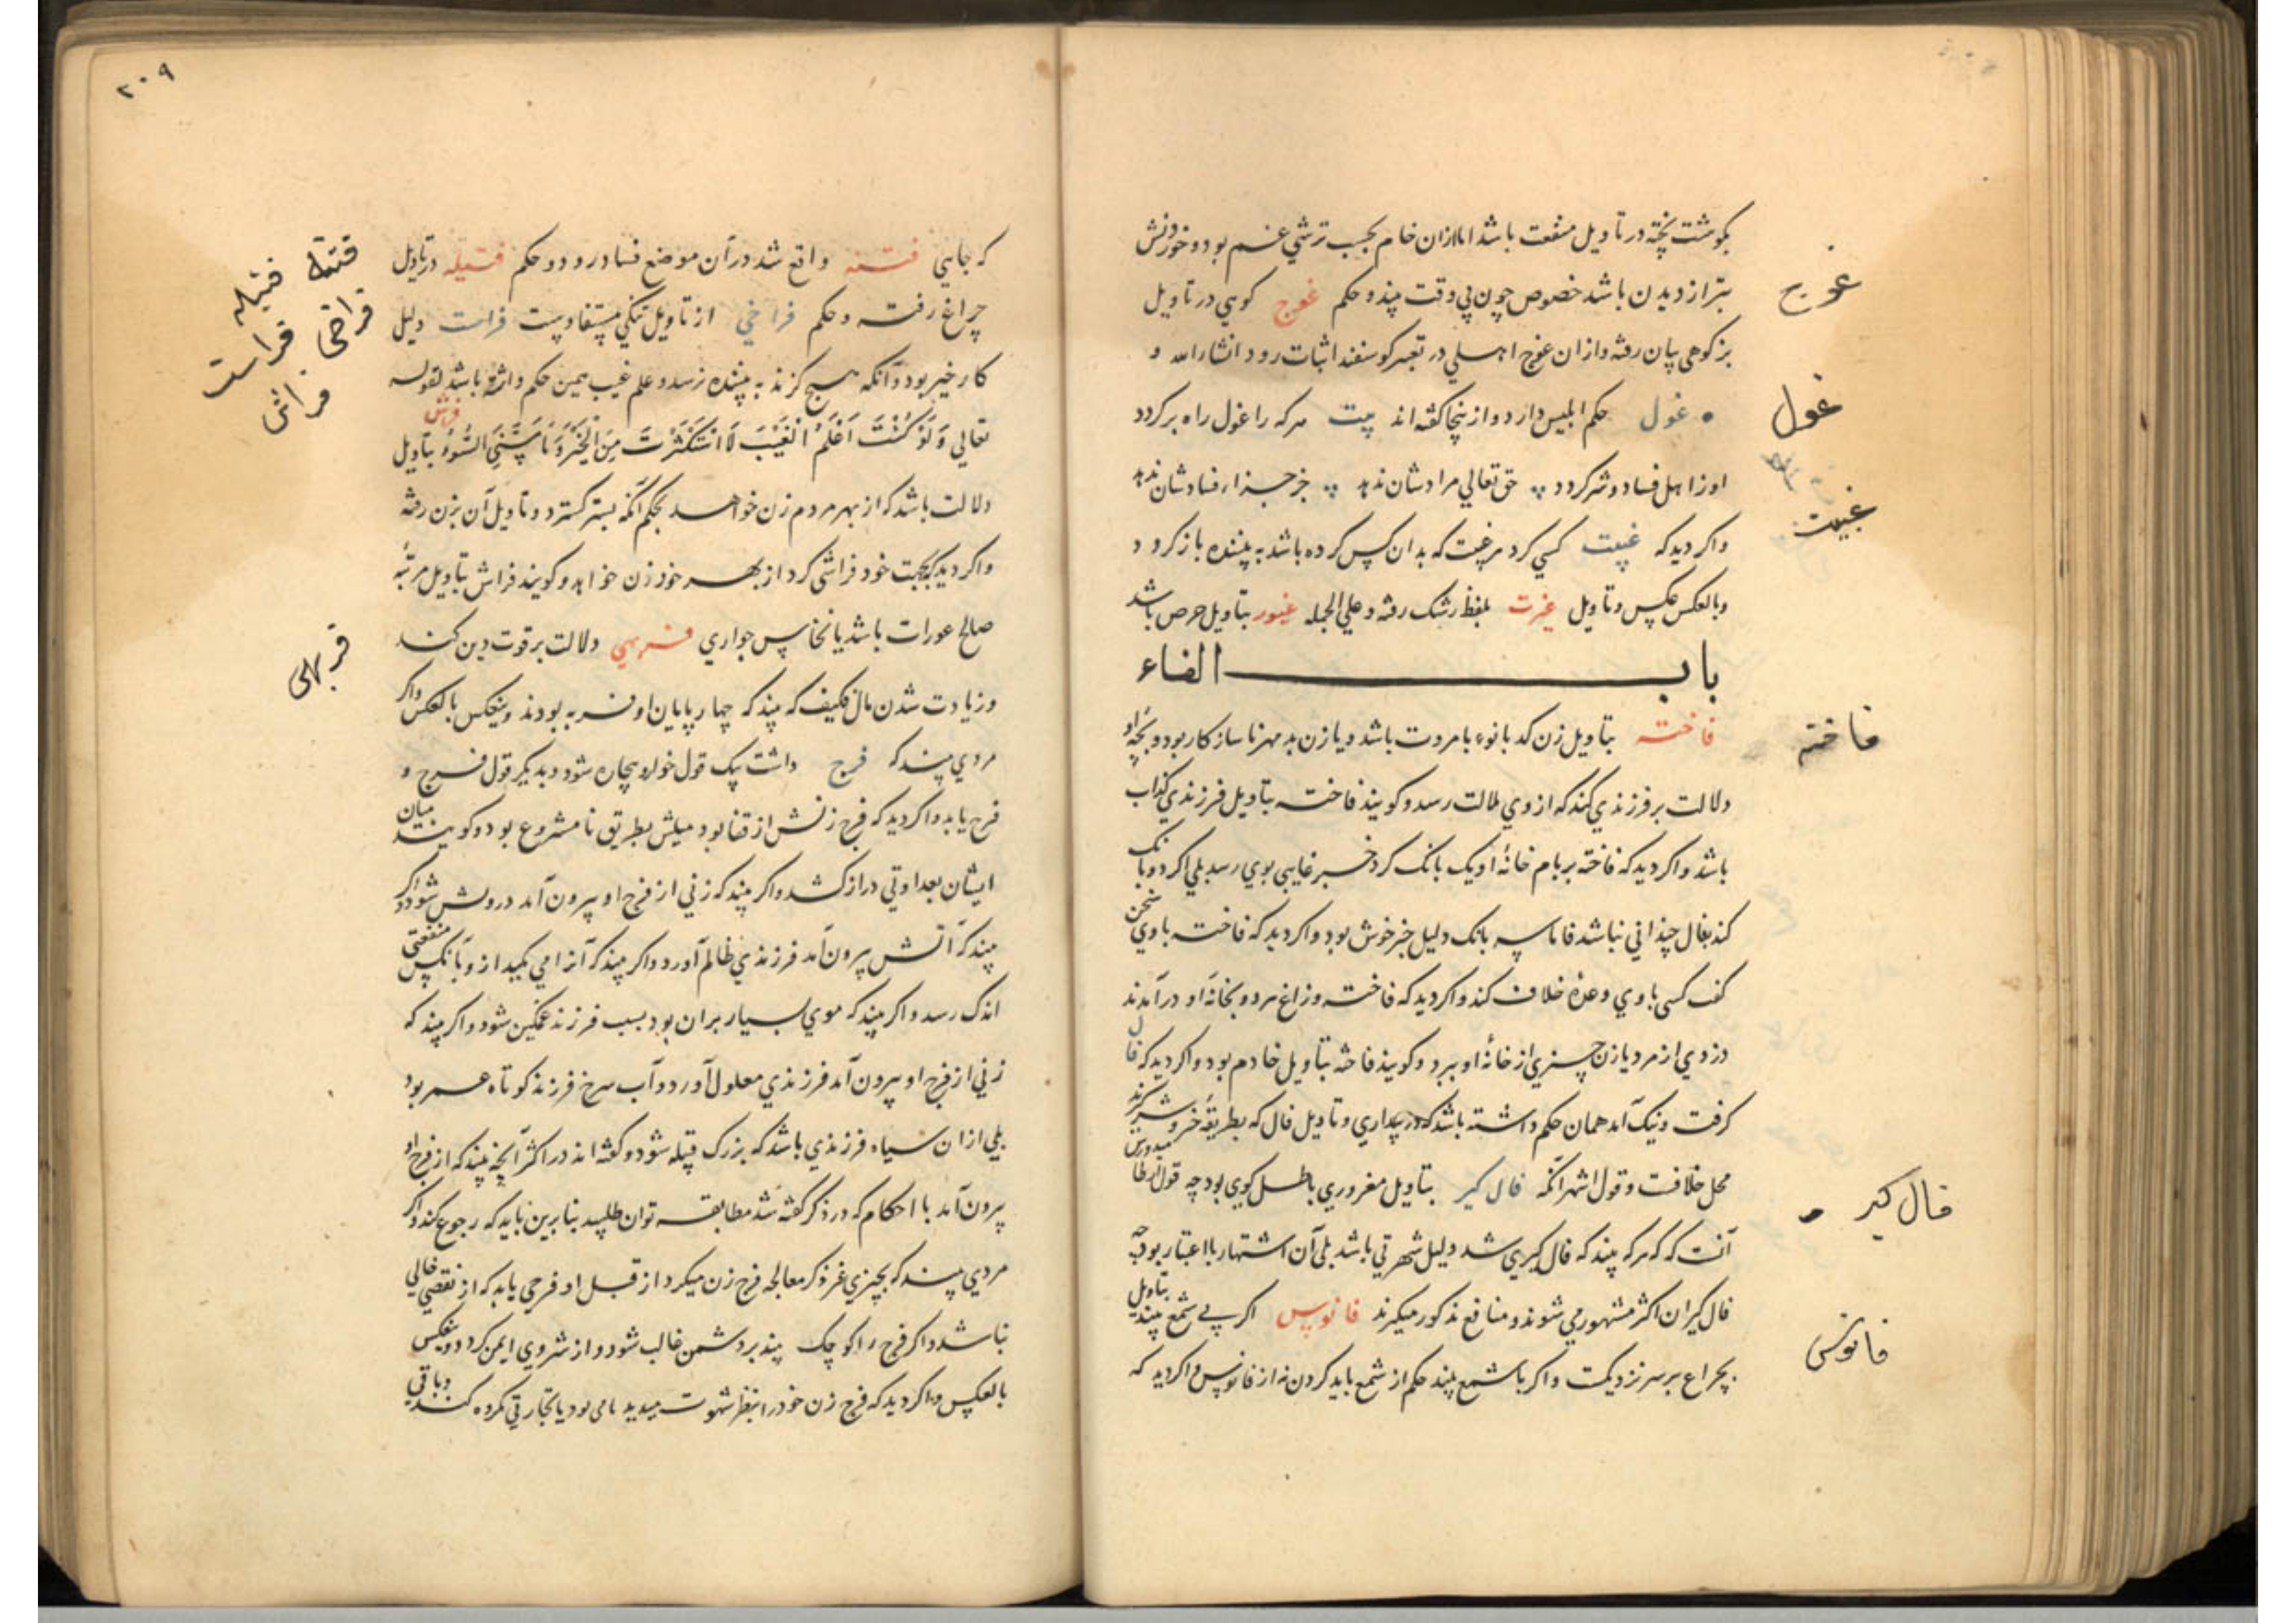 بگوشت پخته در تاویل منفعت باشد اما ازان خام بحسب ترشی غم بود و خوردنش
بتر از دیدن باشد خصوص چون بی وقت بیند و حکم غوج کوهی در تاویل
بز کوهی بیان رفته و ازان غوج اهلی در تعبیر کوسفند اثبات رود انشاء الله و
غول حکم ابلیس دارد و ازینجا کفته اند بیت هر که را غول راه بر کردد
او ز اهل فساد و شر کردد حق تعالی مرادشان ندهد جز جزاء فسادشان ندهد
واکر دید که غیبت کسی کرد هر غیبت که بدان کس کرده باشد به بیننده باز کردد
وبالعکس عکس و تاویل غیرت بلفظ رشک رفته و علی الجمله غیور بتاویل حرص باشد
باب الفاء
فاخته بتاویل زن کدبانوء بامروت باشد و یا زن بد مهر ناسازکار بود و بچه او
دلالت بر فرزندی کند که از وی ملالت رسد و کویند فاخته بتاویل فرزندی کذاب
باشد واکر دید که فاخته بر بام خانه او یک بانک کرد خبر غایبی بوی رسد بلی اکر دو بانک
کند بفال چندانی نباشد فاما سه بانک دلیل خبر خوش بود واکر دید که فاخته با وی سخن
کفت کسی با وی وعده خلاف کند واکر دید که فاخته و زاغ هر دو بخانه او در آمدند
دزدی از مرد یا زن چیزی از خانه او ببرد و کویند فاخته بتاویل خادم بود واکر دید که فال
کرفت و نیک آمد همان حکم داشته باشد که در بیداری و تاویل فال که بطریقه خیر و شر کیرند
محل خلافست و قول اشهر آنکه فال کیر بتاویل مغروری باطل کوی بود چه قول
آنست که هر که بیند که فال کیری شد دلیل شهرتی باشد بلی آن اشتهار با اعتبار بود چه
فال کیران اکثر مشهور می شوند و منافع مذکور میکیرند فانوس اکر بی شمع بیند بتاویل
بچراغ بر سر نزدیکست واکر با شمع بیند حکم از شمع باید کردن نه از فانوس واکر دید که
غوج
غول
غیبت
فاخته
فال کیر
فانوس
۲۰۹
که جایی فتنه واقع شد در آن موضع فساد رود و حکم فتیله در تاویل
چراغ رفت و حکم فراخی از تاویل تنکی مستفادست فراست دلیل
کار خیر بود و آنکه هیچ کزند به بیننده نرسد و علم غیب همین حکم و اثر باشد لقوله
تعالی وَلَوْ كُنْتُ أَعْلَمُ الْغَيْبَ لَاسْتَكْثَرْتُ مِنَ الْخَيْرِ وَمَا مَسَّنِيَ السُّوءُ فرش بتاویل
دلالت باشد که از بهر مردم زن خواهد بحکم آنکه بستر کسترد و تاویل آن بزن رفته
واکر دید که بجهت خود فراشی کرد از بهر خود زن خواهد و کویند فراش بتاویل مرتبه
صالح عورات باشد یا نخاس جواری فربهی دلالت بر قوت دین کند
وزیادت شدن مال فکیف که بیند که چهارپایان او فربه بودند وبعکس بالعکس واکر
مردی بیند که فرج داشت بیک قول خوار و بیچاره شود و بدیکر قول فرج و
فرح یابد واکر دید که فرج زنش از قفا بود میلش بطریق نامشروع بود و کویند میان
ایشان بعداوتی دراز کشد واکر بیند که زنی از فرج او بیرون آمد درویش شود واکر
بیند که آتش بیرون آمد فرزندی ظالم آورد واکر بیند که آنرا می مکید ازو بآنکس منفعتی
اندک رسد واکر بیند که موی بسیار بران بود بسبب فرزند غمکین شود واکر بیند که
زنی از فرج او بیرون آمد فرزندی معلول آورد و آب سرخ فرزند کوتاه عمر بود
بلی ازان سیاه فرزندی باشد که بزرک قبیله شود و کفته اند در اکثر آنچه بیند که از فرج او
بیرون آمد با احکام که در ذکر کفته شد مطابقه توان طلبید بنابرین باید که رجوع کند واکر
مردی بیند که بچیزی غیر ذکر معالجه فرج زن میکرد از قبل او فرجی یابد که از نقصی خالی
نباشد واکر فرج را کوچک بیند بر دشمن غالب شود و از شر وی ایمن کردد وبعکس
بالعکس واکر دید که فرج زن خود را بنظر شهوت میدید نامی بود یا تجارتی مکروه کند وباقی
فتنه
فتیله
فراخی
فراست
فراش
فربهی